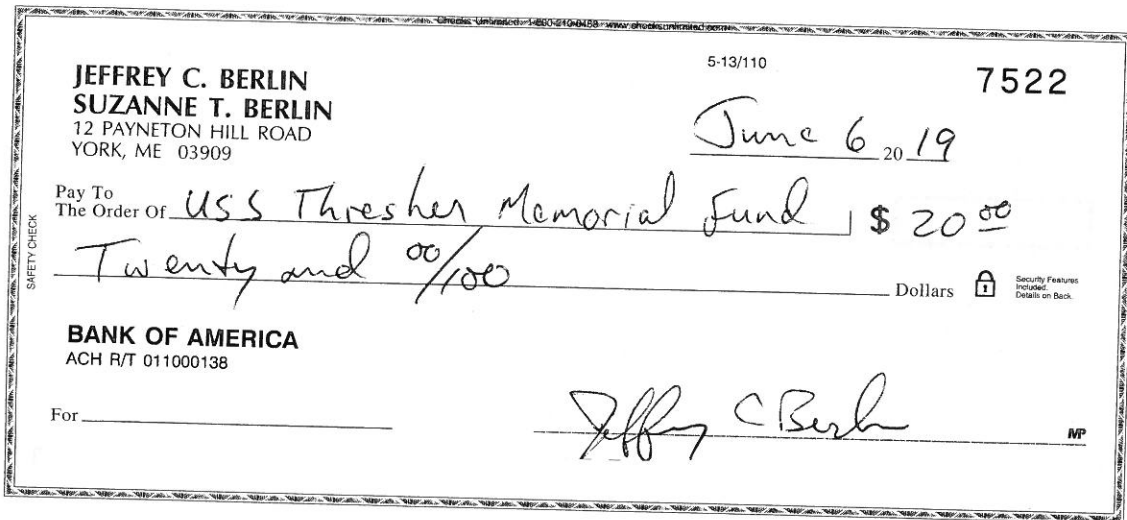 Checks Unlimited 1-800-210-0468 www.checksunlimited.com
5-13/110
7522
JEFFREY C. BERLIN
SUZANNE T. BERLIN
12 PAYNETON HILL ROAD
YORK, ME 03909
June 6 20 19
Pay To
The Order Of USS Thresher Memorial Fund $ 20 00
Twenty and 00/100 Dollars
Security Features
Included.
Details on Back.
SAFETY CHECK
BANK OF AMERICA
ACH R/T 011000138
For
Jeffrey C Berlin
MP